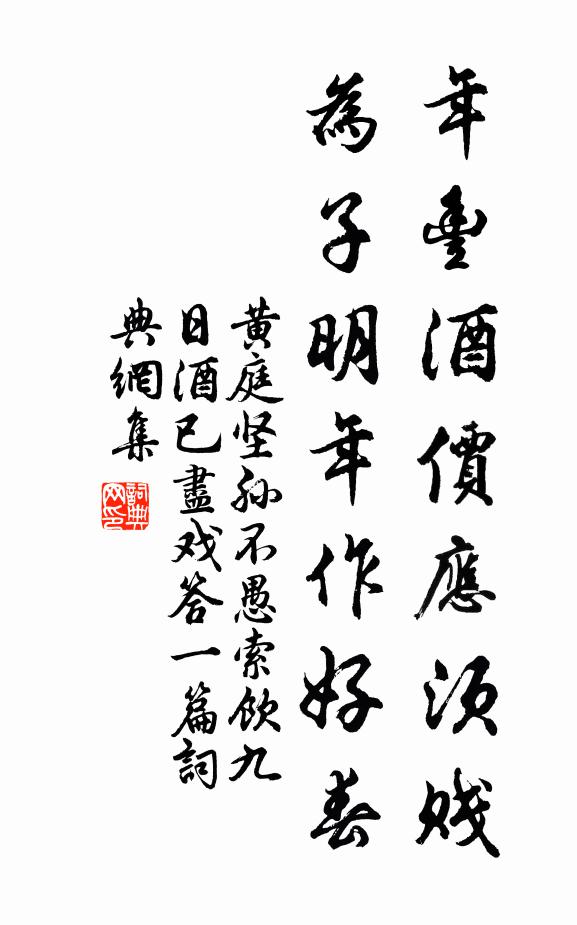 年豐酒價應須賤
為子明年作好春
黄庭坚孙不愚索飲九
日酒已盡戏答一篇詞
典網集
詞典
网印